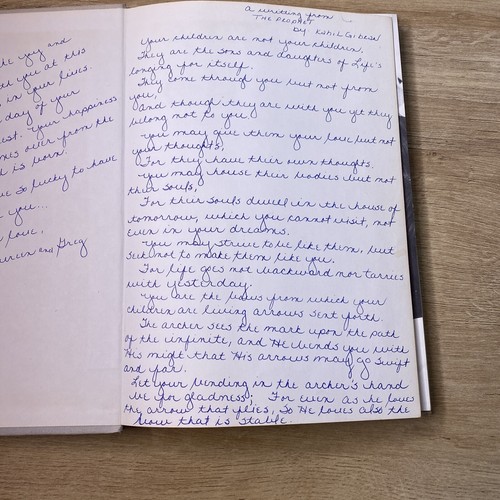 the joy and
th you at this
s in your lives.
day of your
est. Your happiness
mes over from the
h is born.
so lucky to have
you...
love,
and Greg
a writing from
THE PROPHET
by
Your children are not your children.
They are the sons and daughters of Life's
longing for itself.
They come through you but not from
you,
and though they are with you yet they
belong not to you.
You may give them your love but not
your thoughts,
For they have their own thoughts.
You may house their bodies but not
their souls,
For their souls dwell in the house of
tomorrow, which you cannot visit, not
even in your dreams.
You may strive to be like them, but
seek not to make them like you.
For life goes not backward nor tarries
with yesterday.
You are the bows from which your
children are living arrows sent forth.
The archer sees the mark upon the path
of the infinite, and He bends you with
His might that His arrows may go swift
and far.
Let your bending in the archer's hand
be for gladness; For even as he loves
the arrow that flies, So He loves also the
bow that is stable.